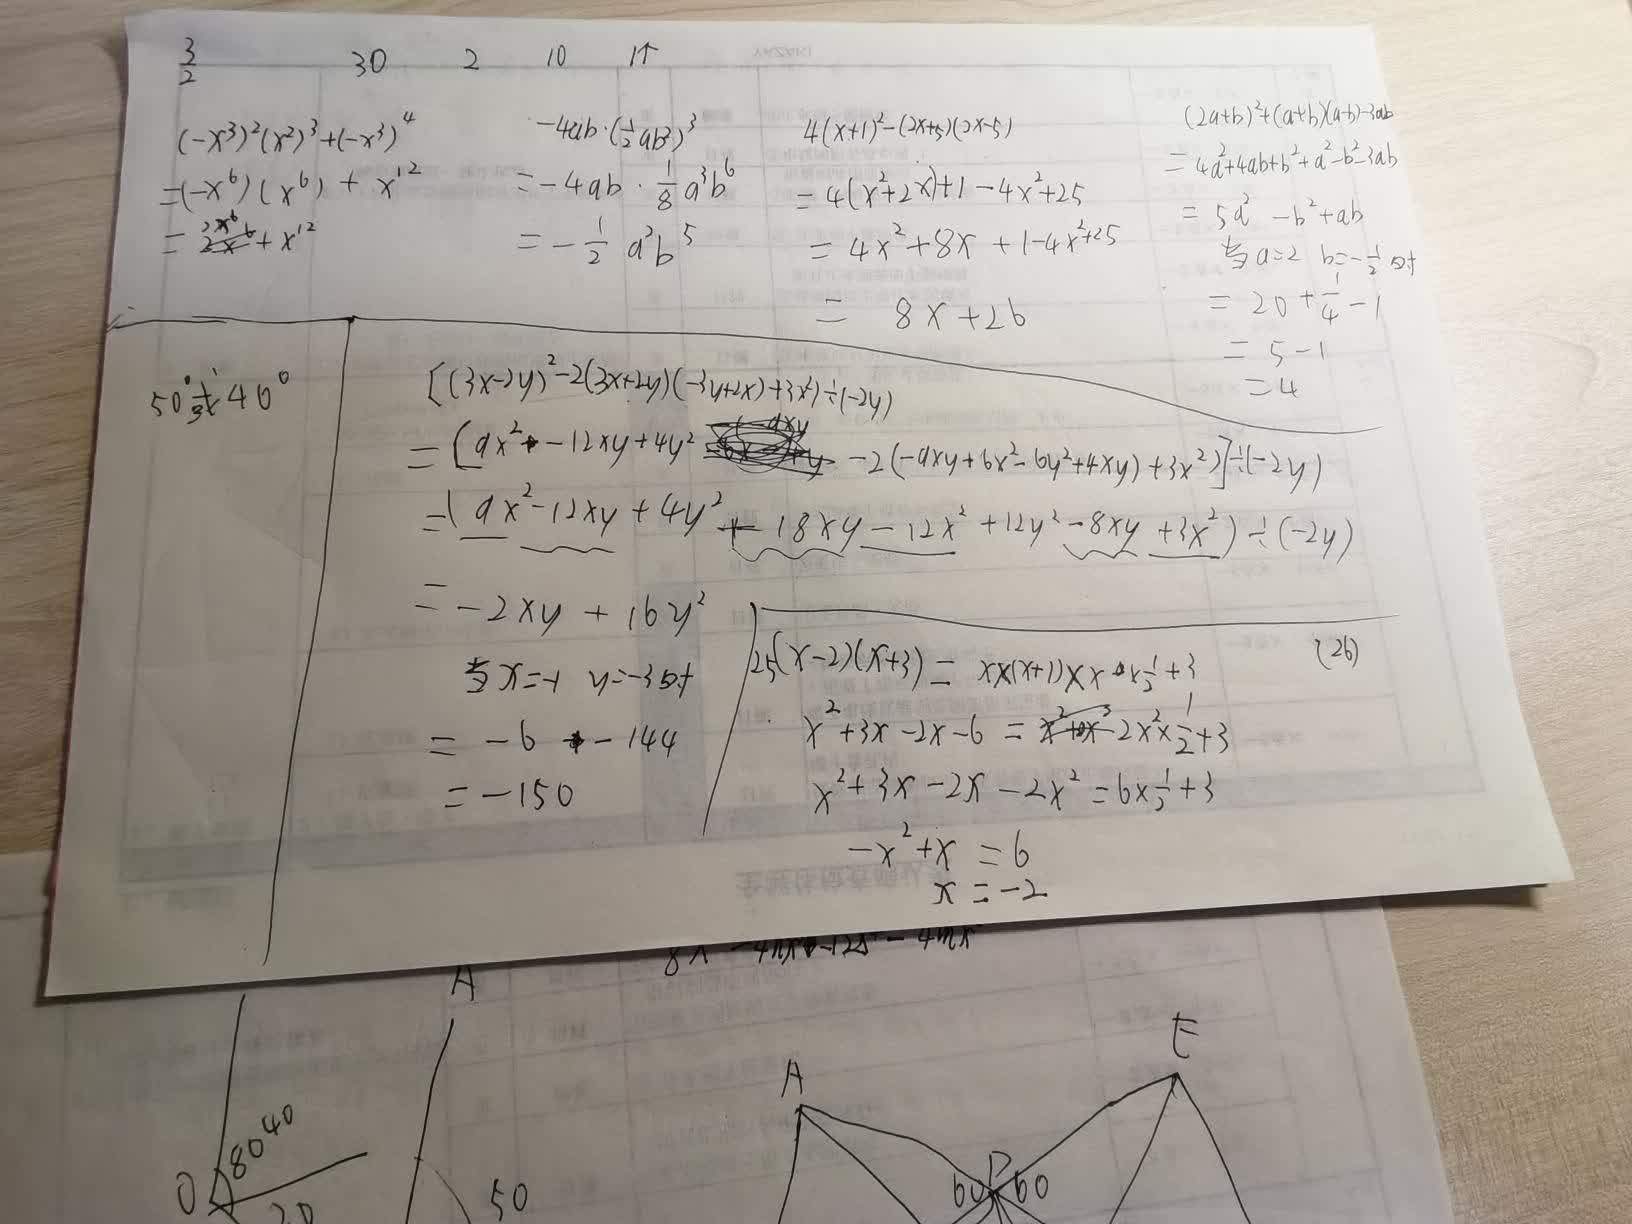 3/2 30 2 10 1个
(-x³)²(x²)³+(-x³)⁴
=(-x⁶)(x⁶)+x¹²
= +x¹²
-4ab·(1/2ab²)³
=-4ab·1/8a³b⁶
=-1/2a²b⁵
4(x+1)²-(2x+5)(2x-5)
=4(x²+2x)+1-4x²+25
=4x²+8x+1-4x²+25
= 8x+26
(2a+b)²+(a+b)(a-b)-3ab
=4a²+4ab+b²+a²-b²-3ab
=5a²-b²+ab
当a=2 b=-1/2时
=20+1/4-1
=5-1
=4
50° 40°
[(3x-2y)²-2(3x+2y)(-3y+2x)+3x²)÷(-2y)
=[9x²-12xy+4y² -2(-9xy+6x²-6y²+4xy)+3x²)]÷(-2y)
=(9x²-12xy+4y²+18xy-12x²+12y²-8xy+3x²)÷(-2y)
=-2xy+16y²
当x=-1 y=-3时
=-6-144
=-150
25(x-2)(x+3)=
(26)
x²+3x-2x-6= -2x²x1/2+3
x²+3x-2x-2x²=6x1/2+3
-x²+x=6
x=-2
A
E
A
O
80 40
20
50
P
60 60